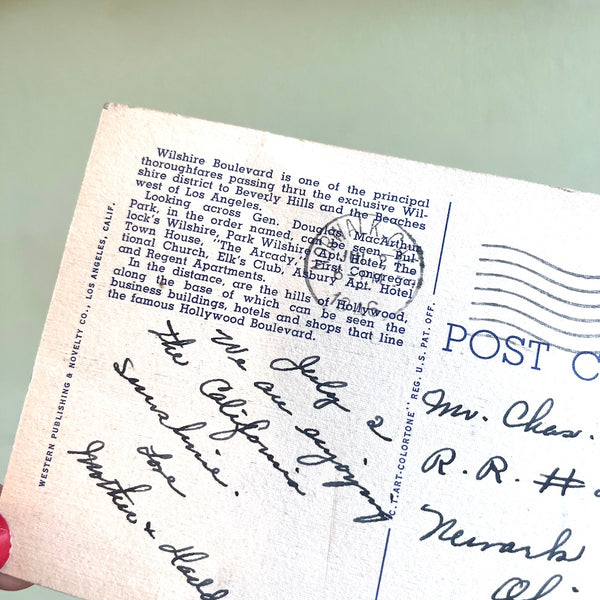 Wilshire Boulevard is one of the principal
thoroughfares passing thru the exclusive Wil-
shire district to Beverly Hills and the Beaches
west of Los Angeles.
Looking across Gen. Douglas MacArthur
Park, in the order named, can be seen, Bul-
lock's Wilshire, Park Wilshire Apt. Hotel, The
Town House, "The Arcady," First Congrega-
tional Church, Elk's Club, Asbury Apt. Hotel
and Regent Apartments.
In the distance, are the hills of Hollywood,
along the base of which can be seen the
business buildings, hotels and shops that line
the famous Hollywood Boulevard.
WESTERN PUBLISHING & NOVELTY CO., LOS ANGELES, CALIF.
July 2
We are enjoying
the California
sunshine.
Love
Mother &
C.T. ART-COLORTONE" REG. U.S. PAT. OFF.
POST C
Mr. Chas.
R.R. #
Newark